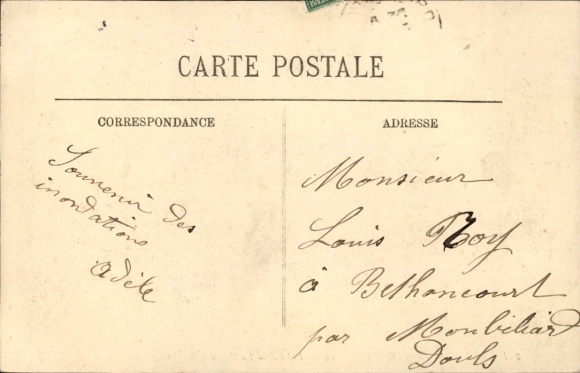 CARTE POSTALE
CORRESPONDANCE
Souvenir des
inondations
Adèle
ADRESSE
Monsieur
Louis Roy
à Bethoncourt
par Monbéliard
Doubs